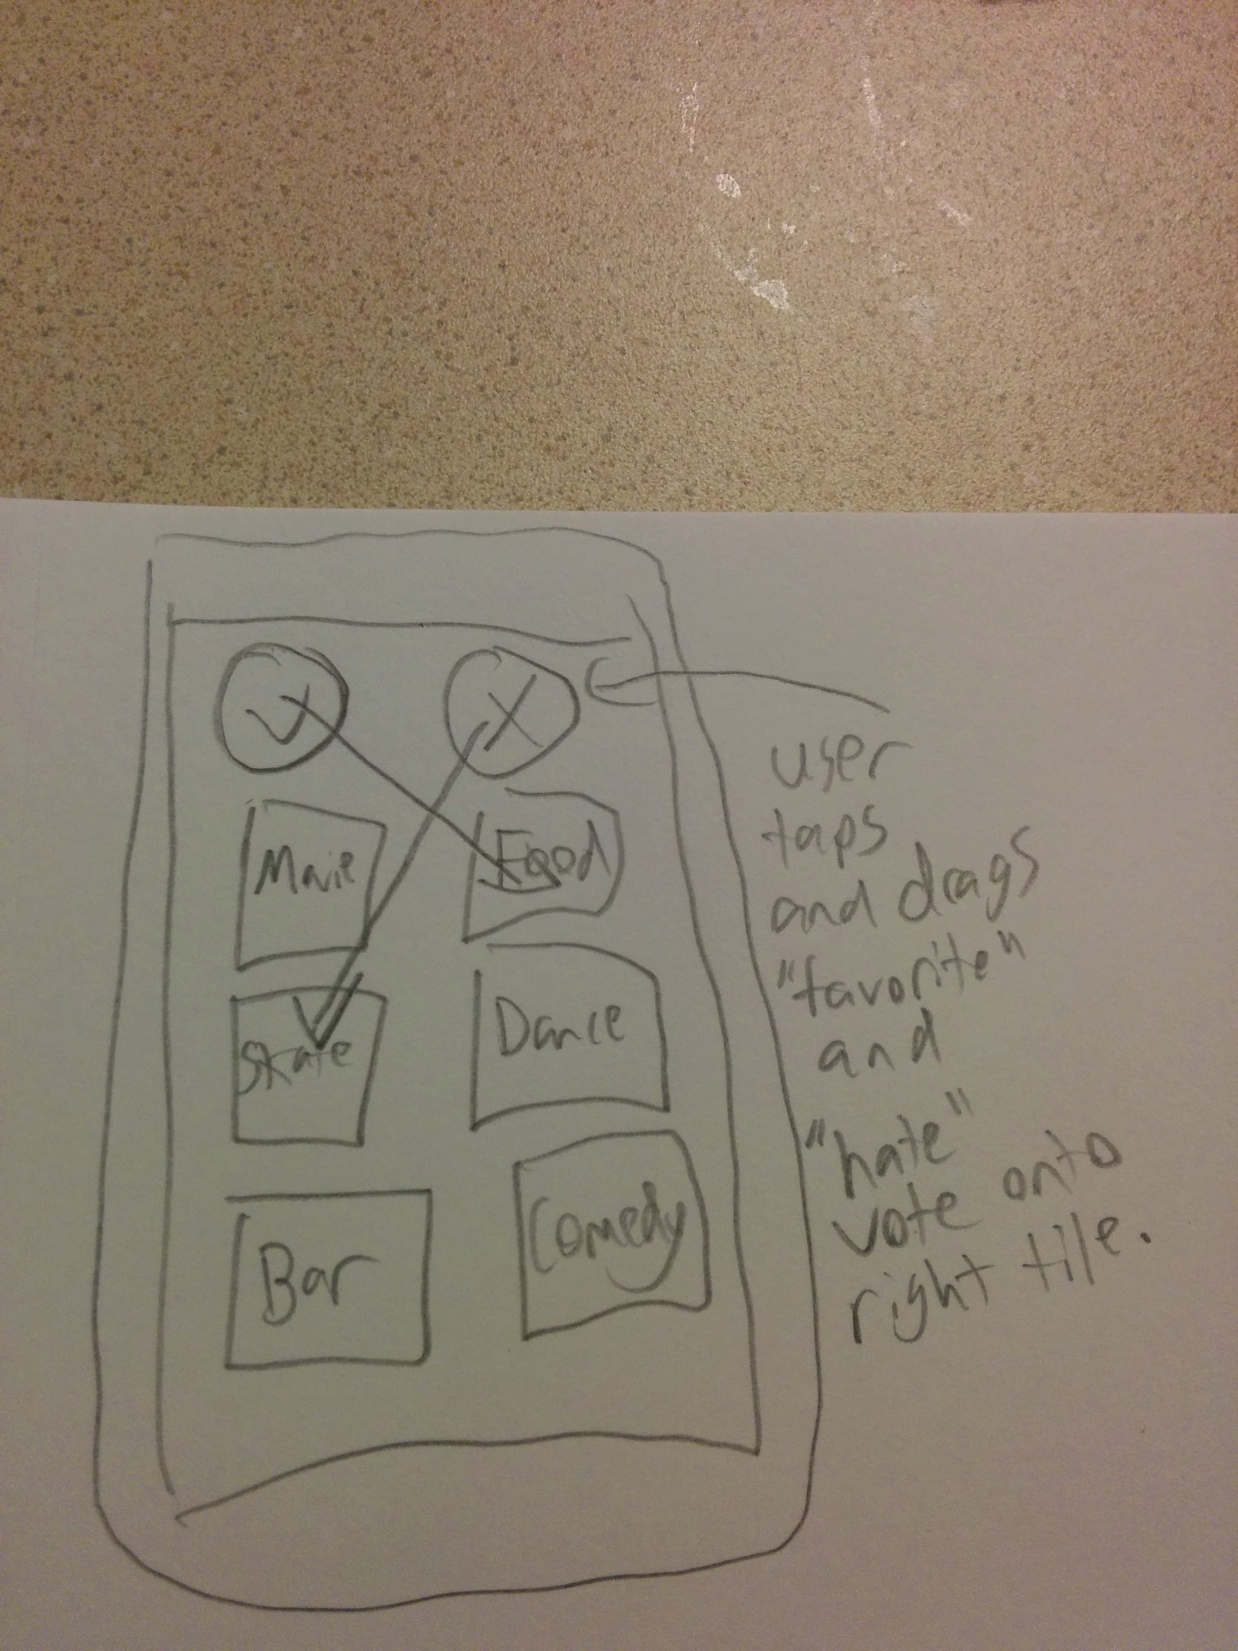 Movie
Food
Skate
Dance
Bar
Comedy
user
taps
and drags
"favorite"
and
"hate"
vote onto
right tile.